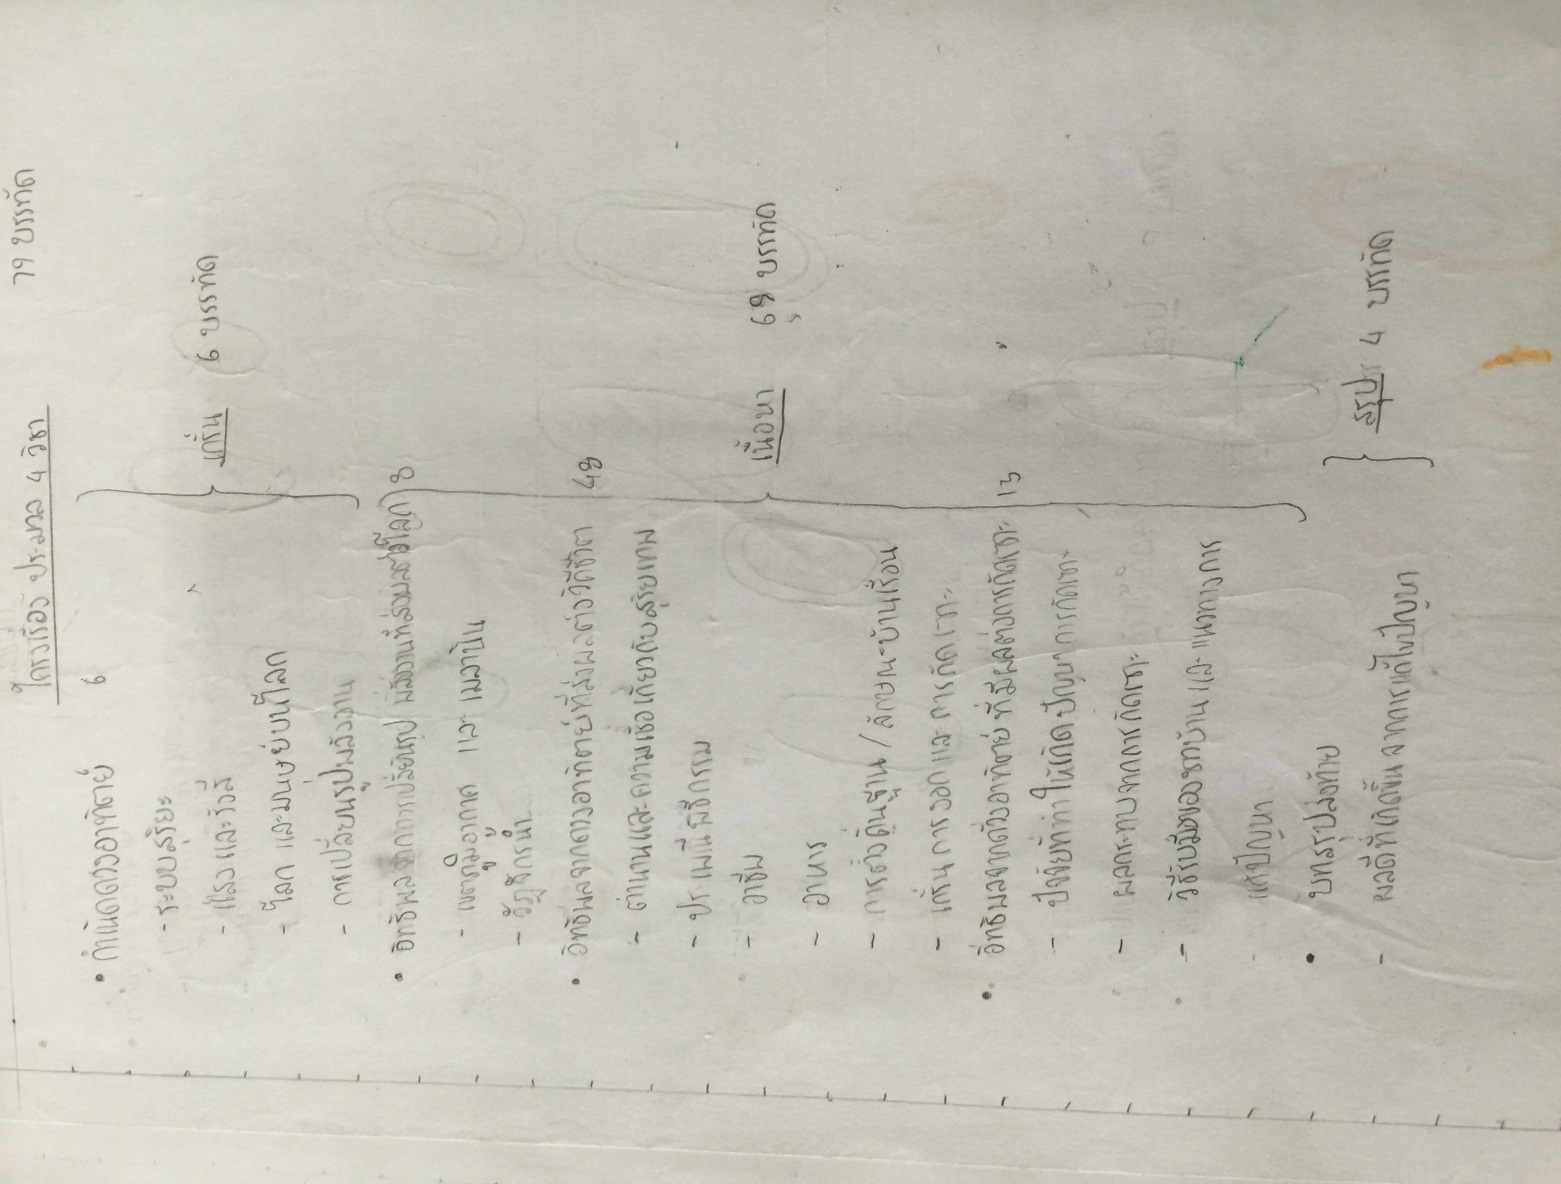 โครงเรื่อง ประมวล 4 วิชา 79 บรรทัด
• กำเนิดดวงอาทิตย์ 6
- ระบบสุริยะ
- แสง และรังสี
- โลก และมนุษย์บนโลก
- การเปลี่ยนรูปพลังงาน
เกริ่น 6 บรรทัด
• อิทธิพลจากการเปลี่ยนรูป พลังงานที่ส่งผลต่อโลก 8
- เขตภูมิอากาศ และ เมลานิน
- วัฏจักรน้ำ
• อิทธิพลจากดวงอาทิตย์ที่ส่งผลต่อวิถีชีวิต 48
- ตำนานและความเชื่อเกี่ยวกับสุริยเทพ
- ประเพณี พิธีกรรม
- อาชีพ
- อาหาร
- การตั้งถิ่นฐาน / ลักษณะบ้านเรือน
- เกริ่นการงอกและการกัดเซาะ
เนื้อหา 69 บรรทัด
• อิทธิพลจากดวงอาทิตย์ ที่มีผลต่อการกัดเซาะ 13
- ปัจจัยที่ทำให้เกิดปัญหาการกัดเซาะ
- ผลกระทบจากการกัดเซาะ
- วิธีรับมือของชาวบ้าน และ แนวทางการ
แก้ปัญหา
• บทสรุปส่งท้าย
- ผลดีที่เกิดขึ้น จากการแก้ไขปัญหา
สรุป 4 บรรทัด